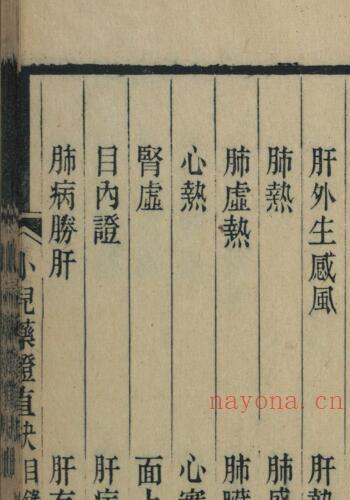 肝外生感風 肝熱
肺熱 肺感
肺虛熱 肺
心熱 心實
腎虛 面上
目內證 肝病
肺病勝肝 肝有
小兒藥證直訣 目錄
nayona.cn